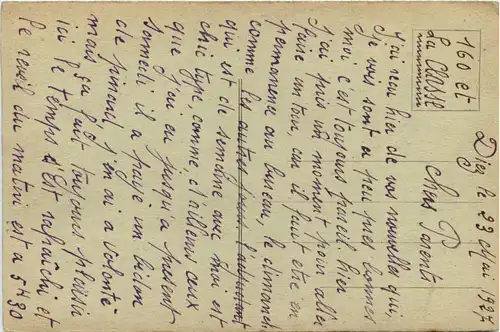 160 et
La Classe
Diez le 23 Mai 1927
Chers Parents
J'ai reçu hier de vos nouvelles qui,
je vois sont à peu près bonnes
moi c'est toujours pareil hier
j'ai pris un moment pour aller
faire un tour, car il faut être en
permanence au bureau, le dimanche
comme les autres jours l'adjudant
qui est de semaine avec moi est
chic type comme, d'ailleurs ceux
que j'ai eu jusqu'à présent
il a payé un bidon
de pinard, j'en ai à volonté
mais ça fait toujours plaisir
ici le temps s'est rafraîchi et
le réveil du matin est à 5H30